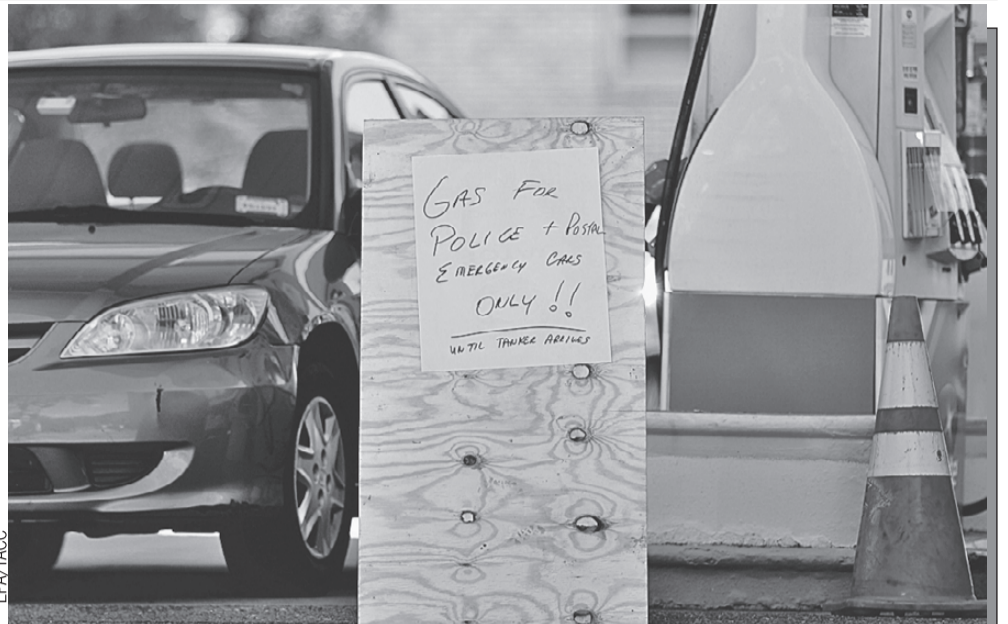 GAS FOR
POLICE + POSTAL
EMERGENCY CARS
ONLY !!
UNTIL TANKER ARRIVES
EPA/TACC